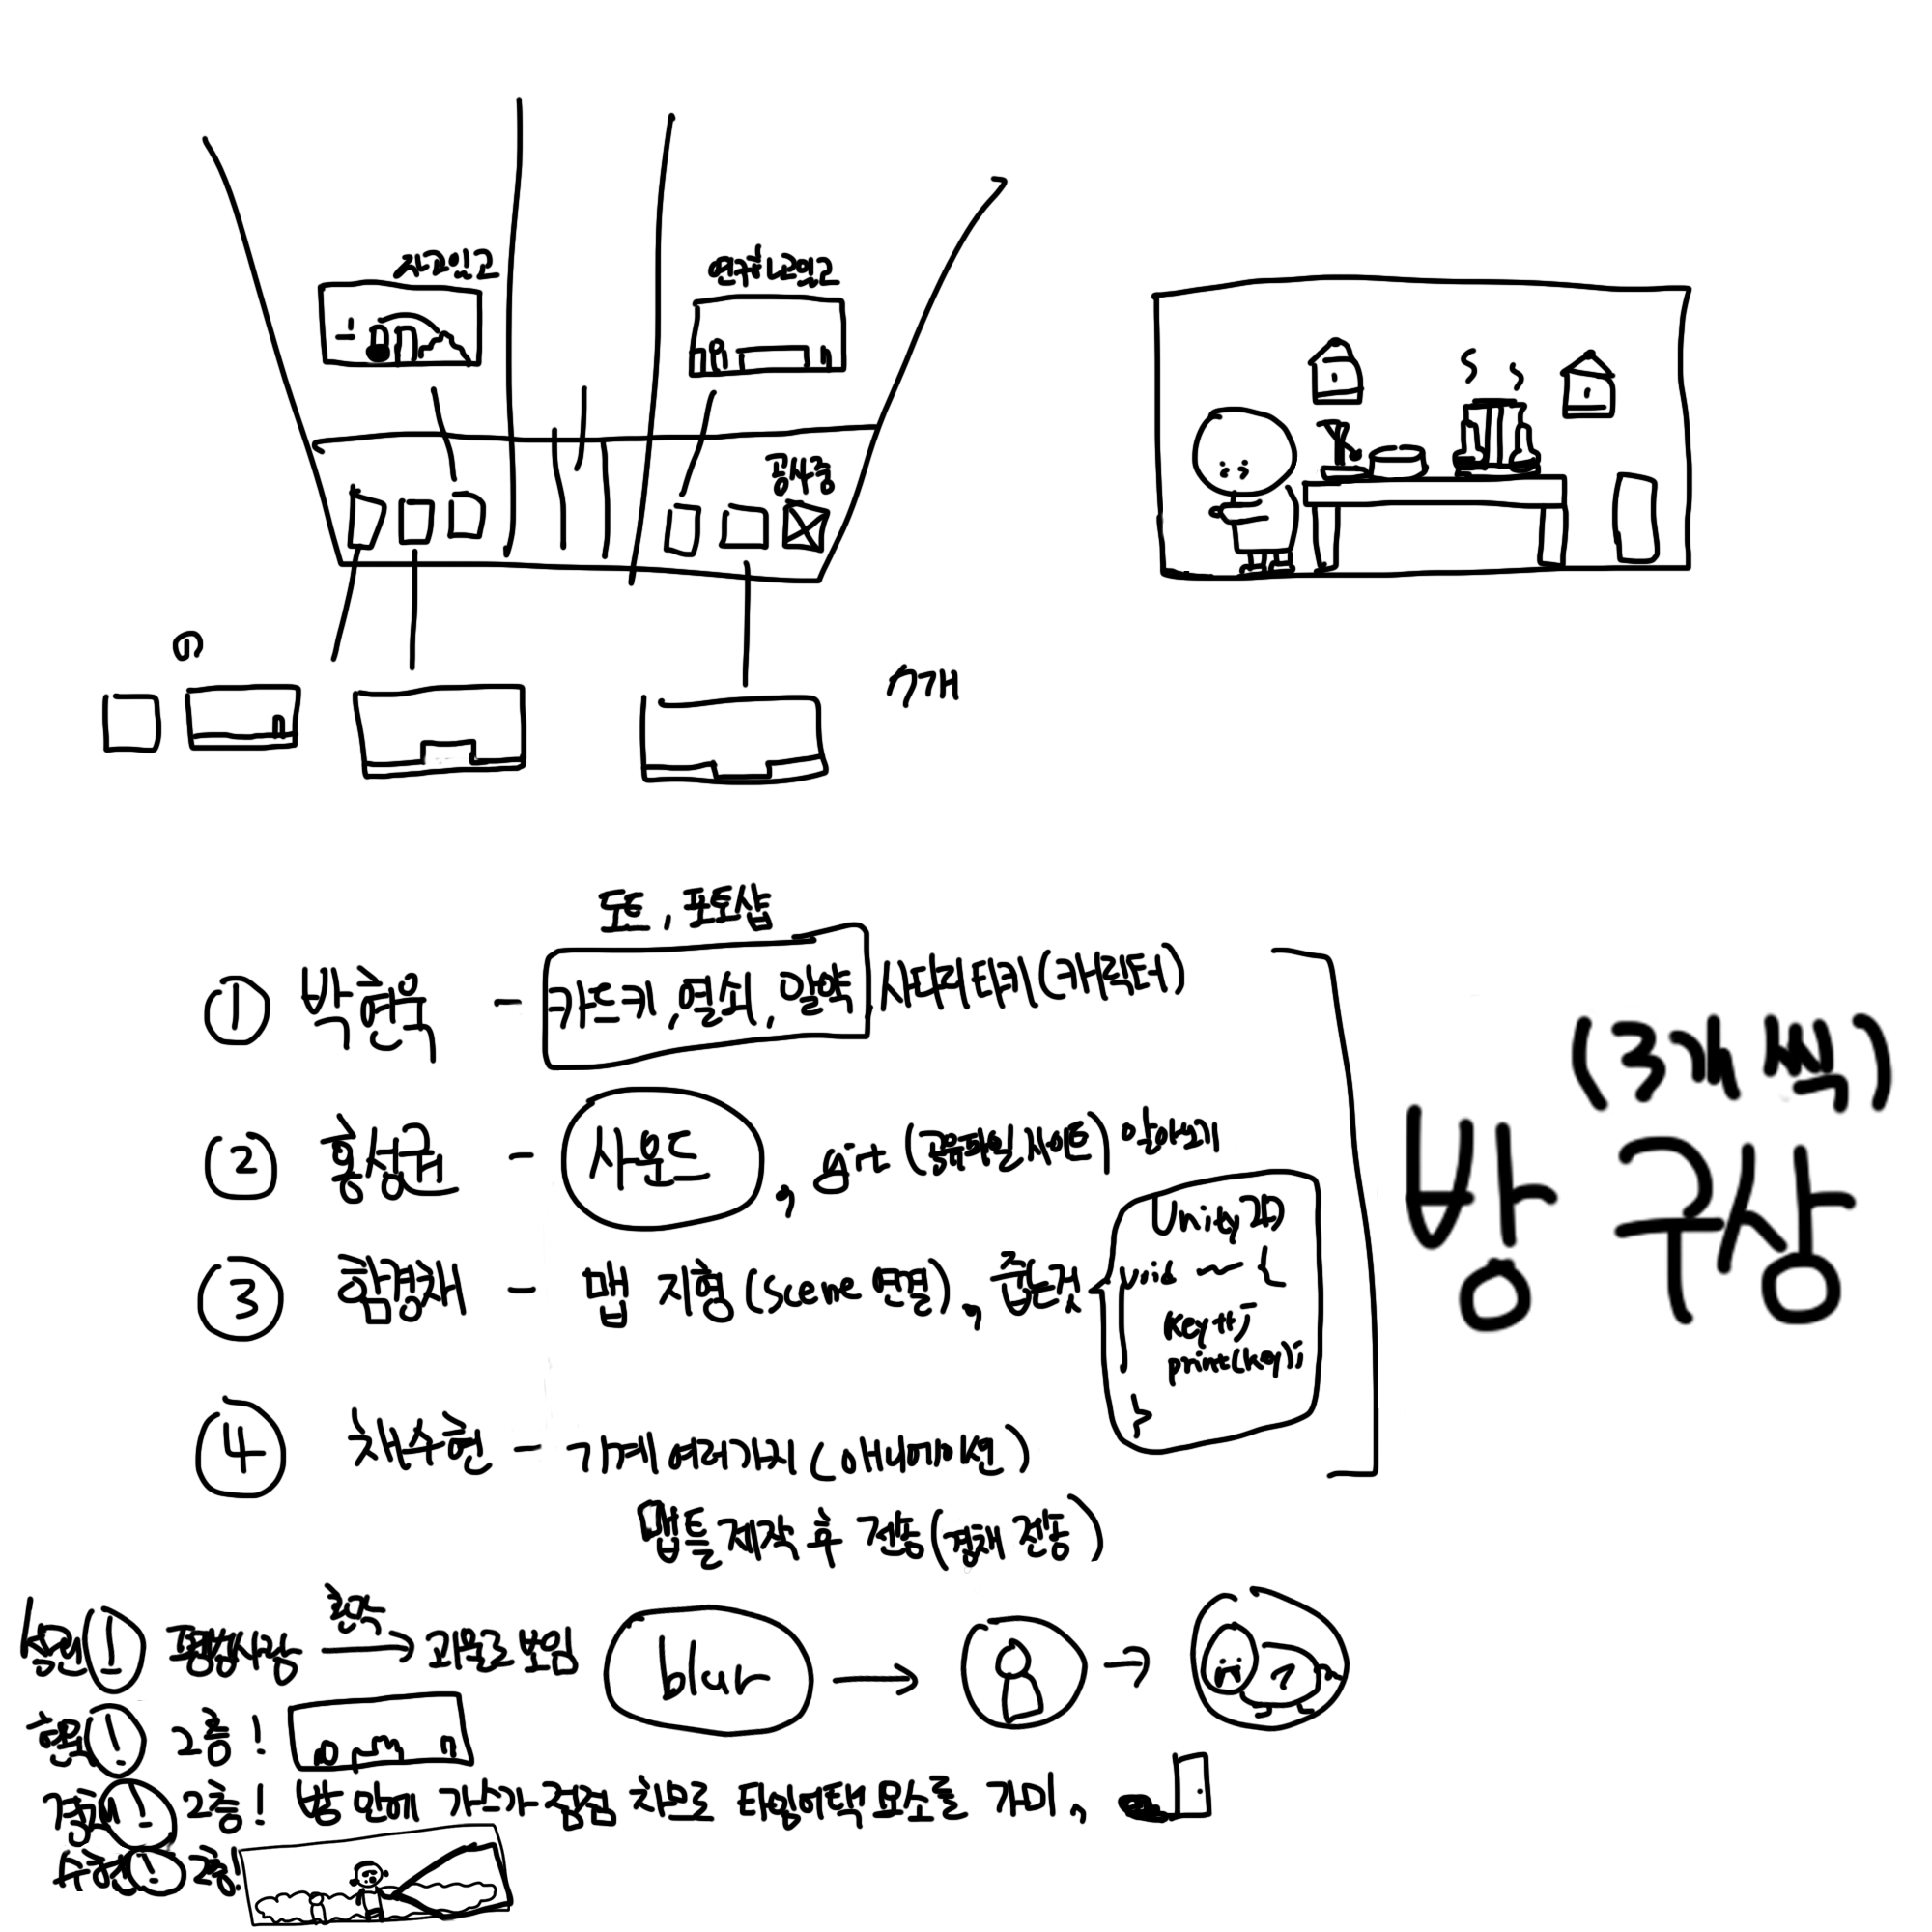 공사중
7개
도트, 포토샵
① 박현욱 - 카드키, 열쇠, 알약 사다리타기 (캐릭터)
② 홍성규 - 사운드, git (공유파일 사이트) 알아보기
③ 함경채 - 맵 지형 (scene 연결), 줍는것
Unity 2D
void ~ {
key++;
print(key);
}
④ 채수현 - 기계 여러가지 (애니메이션)
맵들 제작 후 전송 (경채 전송)
(3개씩)
방 구상
평범사람 환각 → 괴물로 보임 blur → →
현욱! 2층!
경채! 2층! 방 안에 가스가 점점 차므로 타임어택 요소를 가미,
수현! 2층!